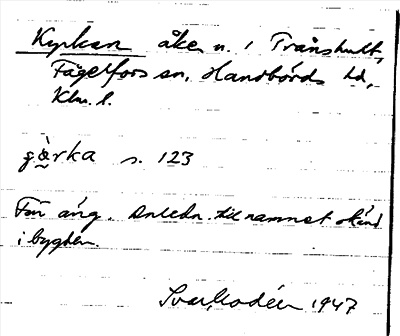 Kyrkan åker n. i Transhult,
Fågelfors sn, Handbörds hd,
Klm. l.
gàrka s. 123
Förr äng. Anledn. till namnet okänd
i bygden.
Svar, Modéer 1947